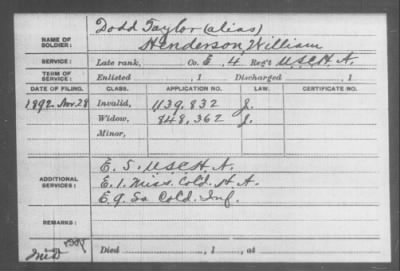 Dodd Taylor (alias)
NAME OF SOLDIER: Henderson, William
SERVICE: Late rank, Co. E, 4 Reg't U.S.C.H.A.
TERM OF SERVICE: Enlisted , 1 Discharged , 1
DATE OF FILING. CLASS. APPLICATION NO. LAW. CERTIFICATE NO.
1892 Nov. 28 Invalid, 1139,832 J.
Widow, 848,362 J.
Minor,
E. 5. U.S.C.H.A.
ADDITIONAL SERVICES: E. 1. Miss. Cold. H. A.
E. 9. La Cold. Inf.
REMARKS:
Died , 1 , at